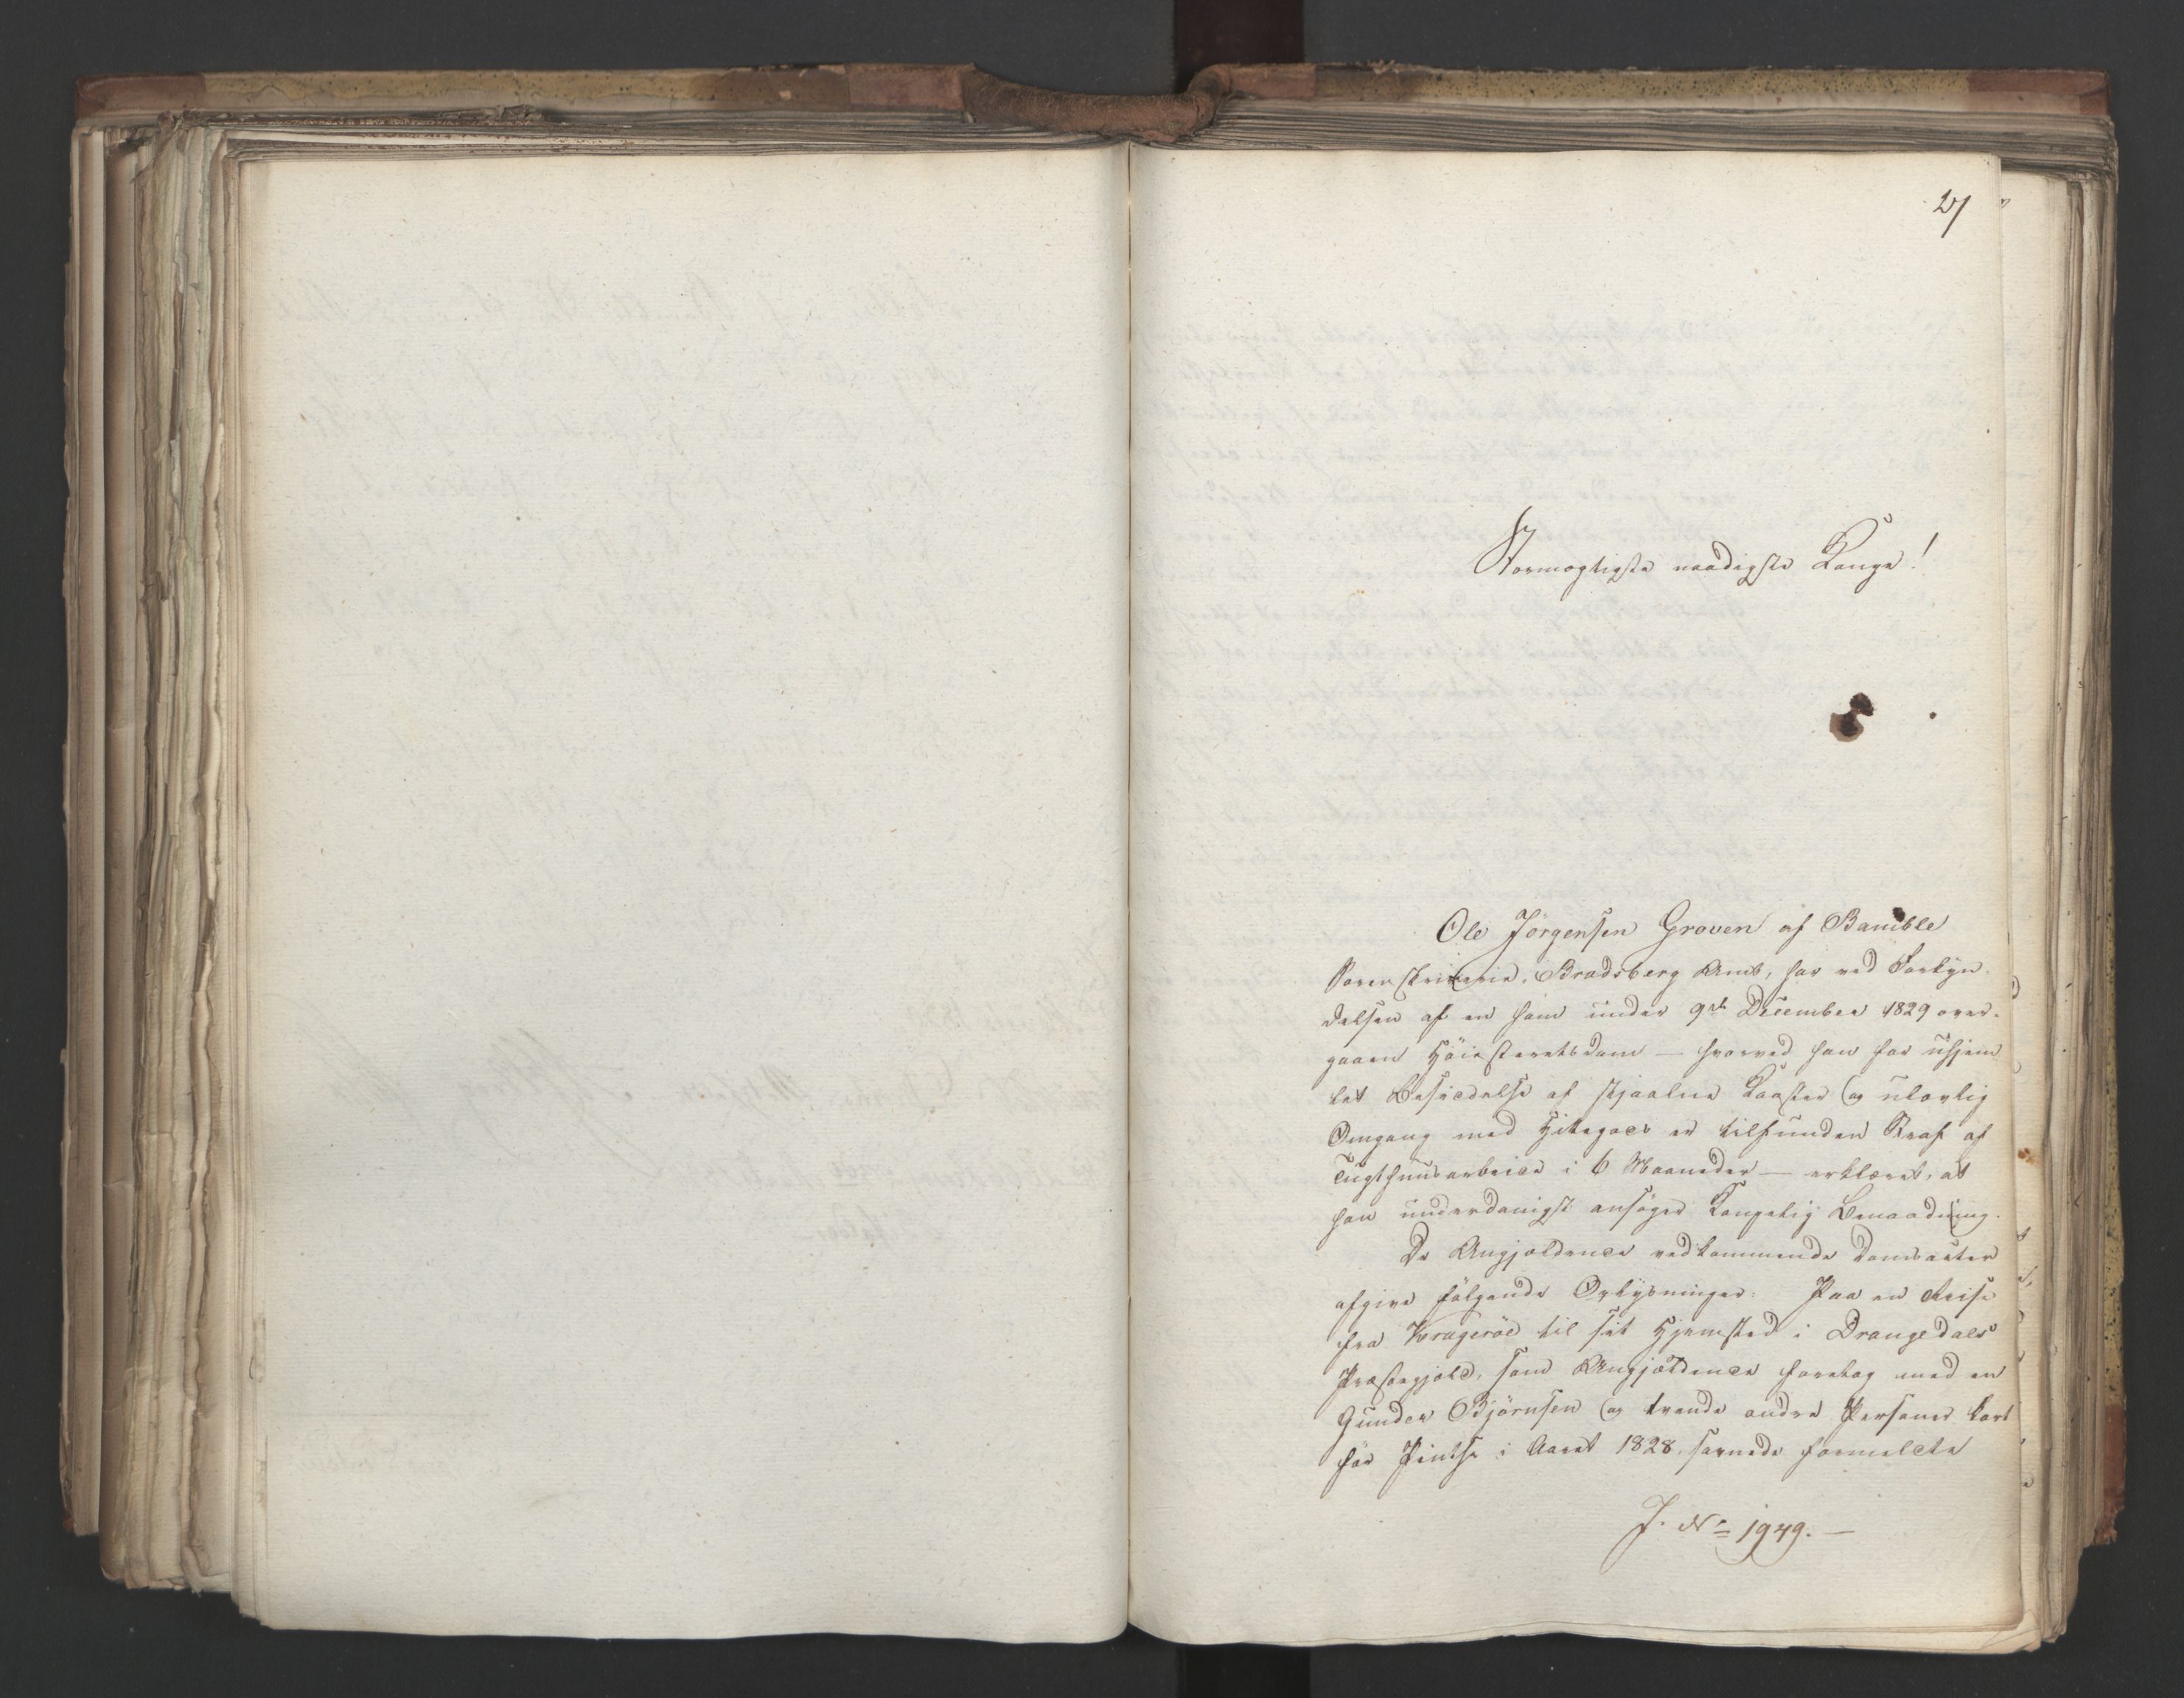 27
Stormægtigste naadigste Konge!
Ole Jörgensen Groven af Bamble
Sorenskriverie, Bradsberg Amt, har ved Forkyn-
delsen af en ham under 9de December 1829 over-
gaaen Höiesteretsdom — hvorved han for uhjem-
let Besiddelse af stjaalne Koster og ulovlig
Omgang med Hitegods er tilfunden Straf af
Tugthuusarbeide i 6 Maaneder — erklæret, at
han underdanigst ansöger Kongelig Benaadning.
De Angjældende vedkommende Domsacter
afgive fölgende Oplysninger: Paa en Reise
fra Krageröe til sit Hjemsted i Drangedals
Præstegjeld, som Angjældende foretog med en
Gunder Björnsen og tvende andre Personer kort
för Pintse i Aaret 1828, savnede formeldte
J. No 1949. —